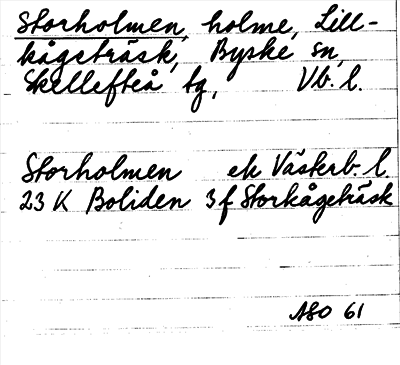 Storholmen, holme, Lill-
kågeträsk, Byske sn,
Skellefteå tg, Vb. l.
Storholmen ek Västerb. l.
23 K Boliden 3 f Storkågeträsk
ASO 61